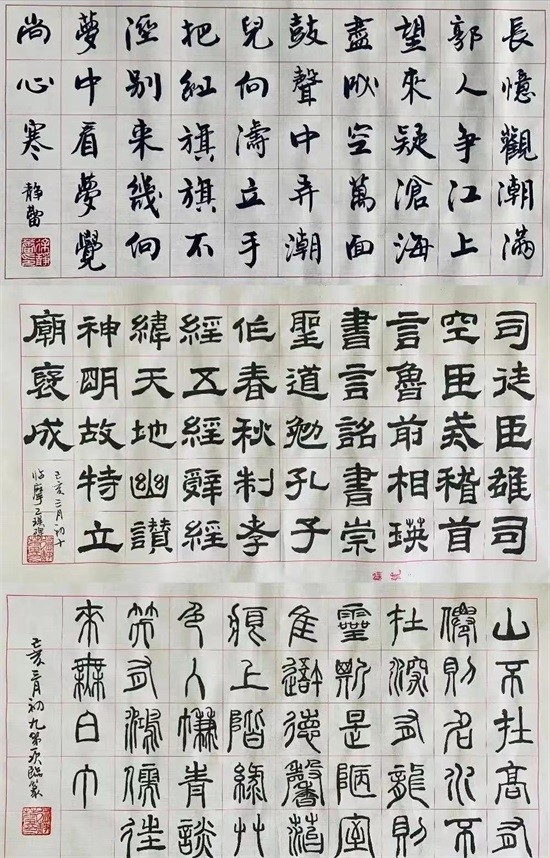 長憶觀潮滿
郭人爭江上
望來疑滄海
盡成空萬面
鼓聲中弄潮
兒向濤立手
把紅旗旗不
溼别来幾向
夢中看夢覺
尚心寒
静蕾
司徒臣雄司
空臣戒稽首
言魯前相瑛
書言詔書崇
聖道勉孔子
作春秋制孝
經五經辤經
緯天地幽讃
神明故特立
廟襃成
己亥三月初十
临摩乙瑛碑
山不在高有
僊則名水不
在深有龍則
靈斯是陋室
隹吾德馨苔
痕上階緑艸
色入簾青談
笑有鴻儒往
來無白丁
己亥三月初九第次临篆